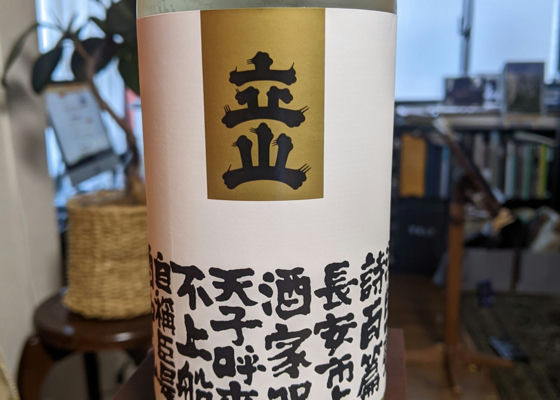 立山
詩百篇
長安市上
酒家眠
天子呼來
不上船
自稱臣是